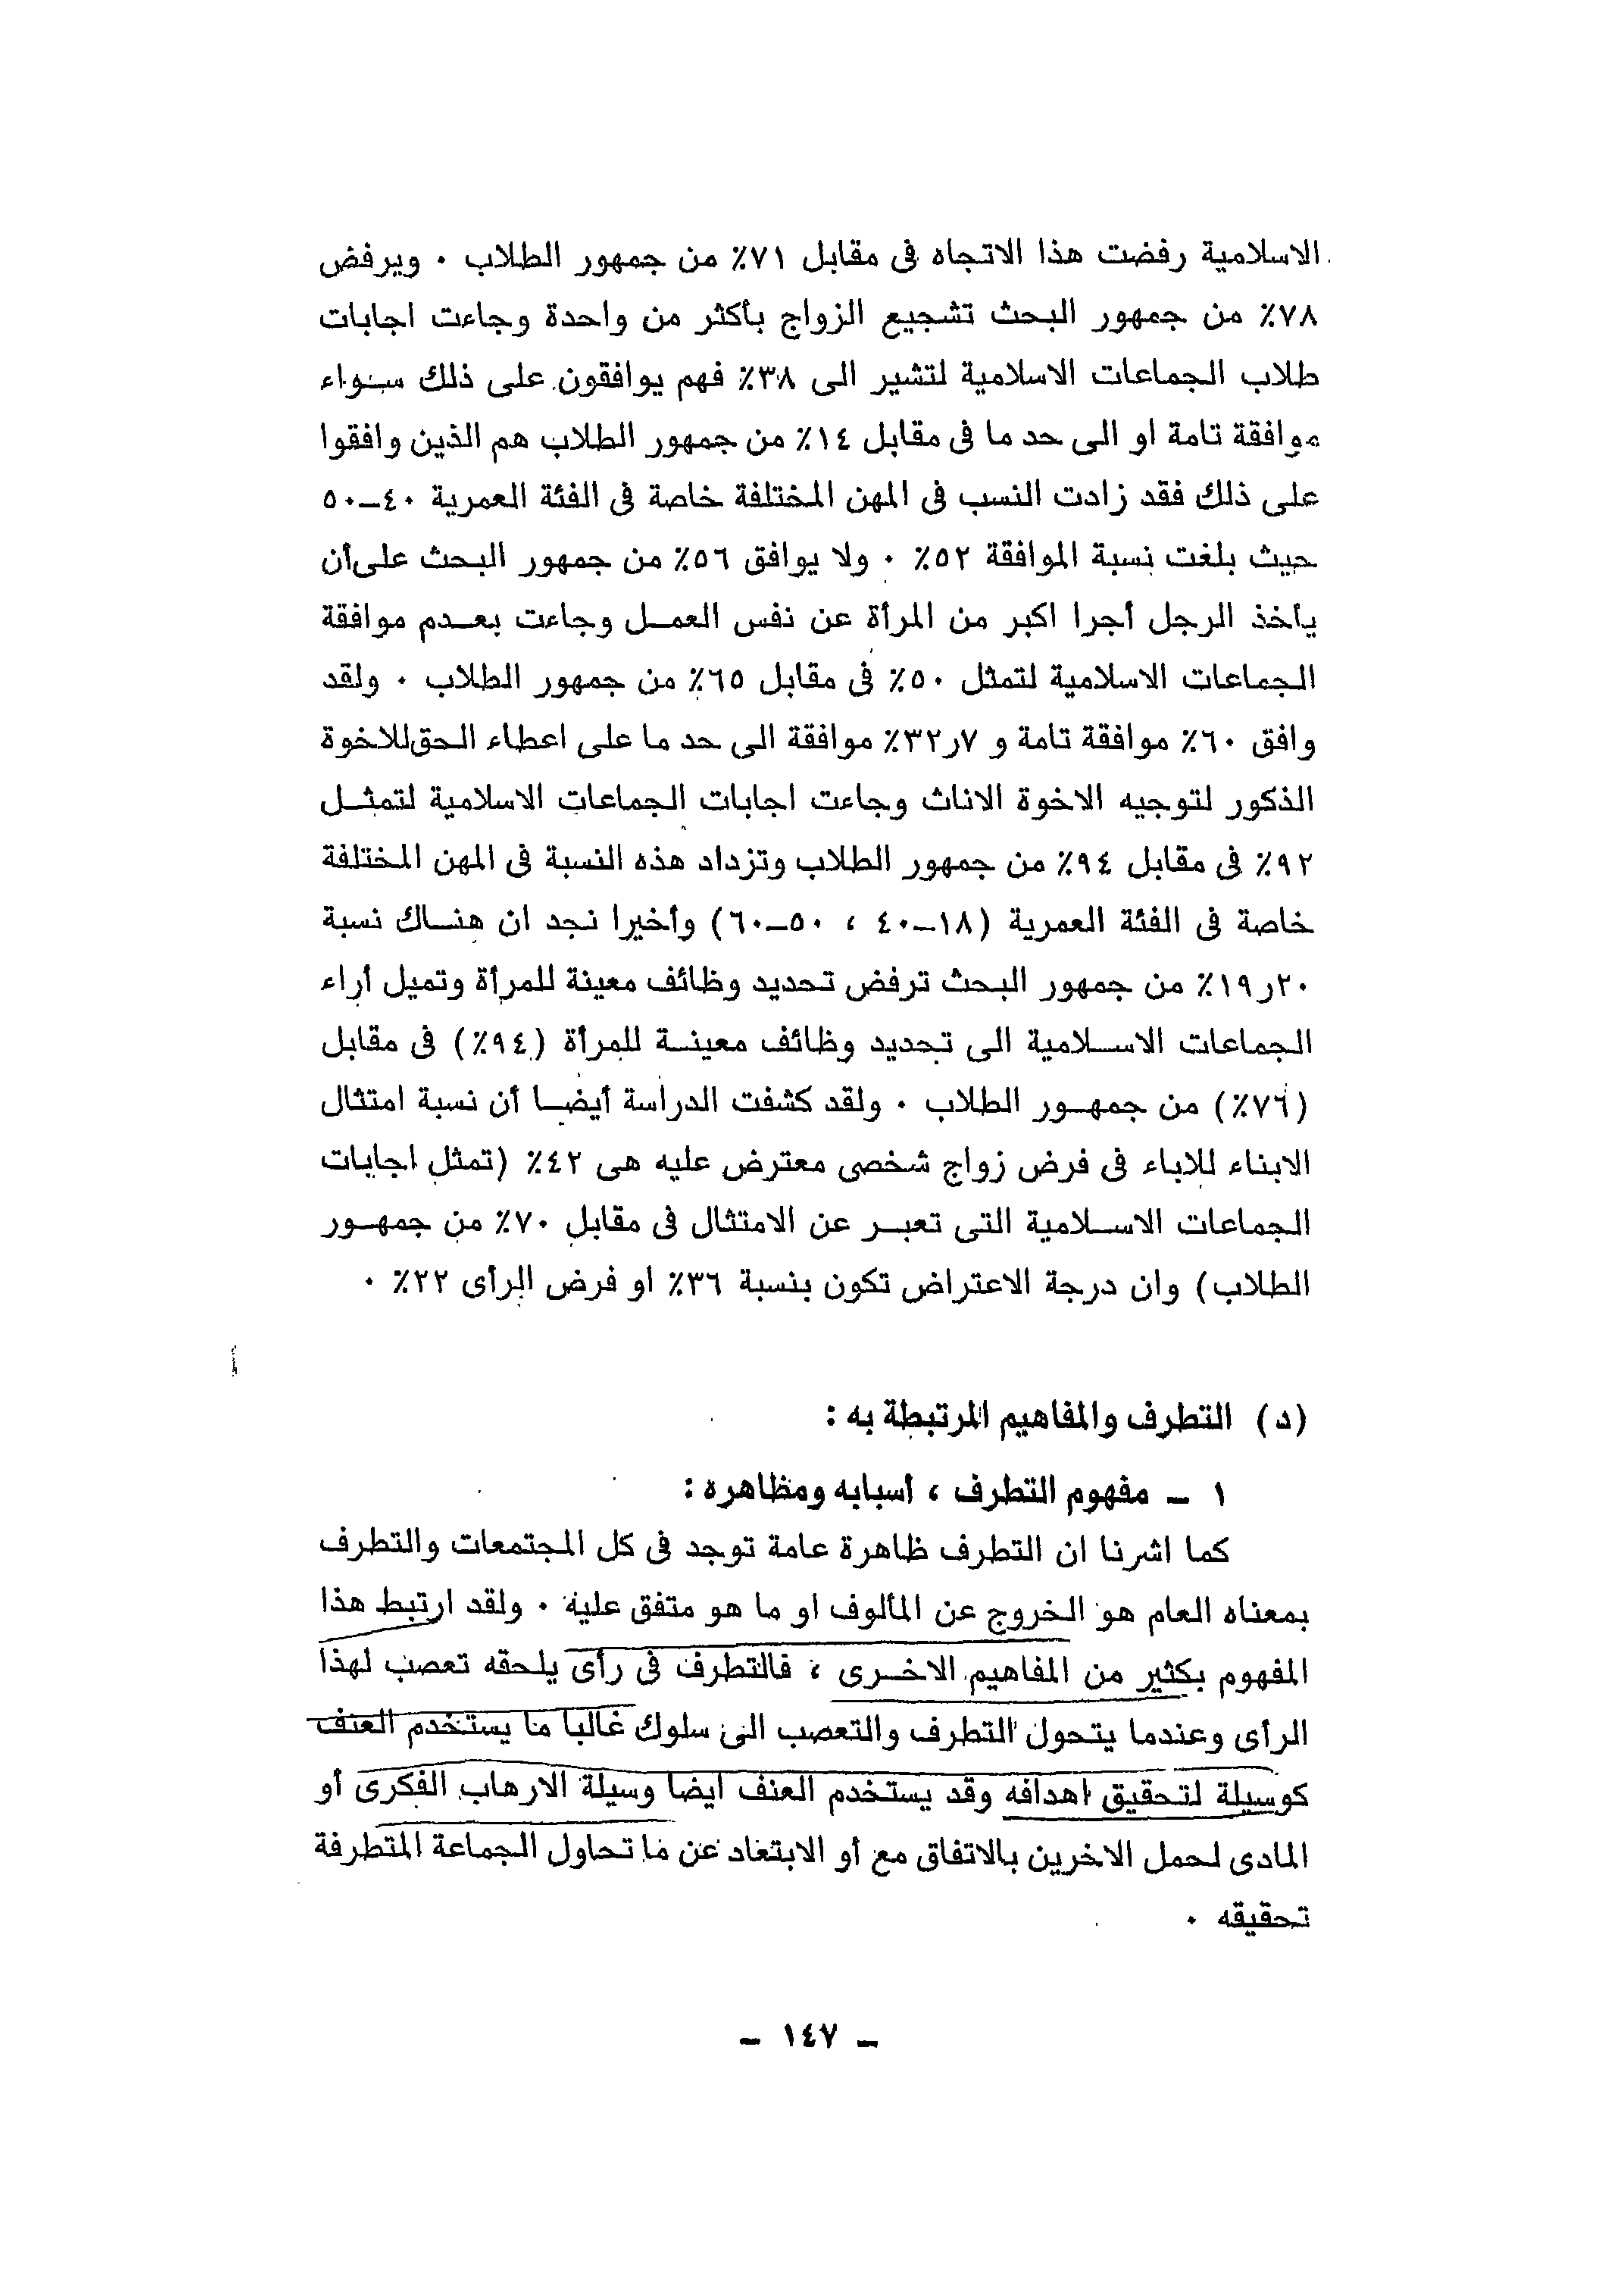 الاسلامية رفضت هذا الاتجاه فى مقابل ٧١٪ من جمهور الطلاب ٠ ويرفض
٧٨٪ من جمهور البحث تشجيع الزواج بأكثر من واحدة وجاءت اجابات
طلاب الجماعات الاسلامية لتشير الى ٣٨٪ فهم يوافقون على ذلك سواء
موافقة تامة او الى حد ما فى مقابل ١٤٪ من جمهور الطلاب هم الذين وافقوا
على ذلك فقد زادت النسب فى المهن المختلفة خاصة فى الفئة العمرية ٤٠ــ٥٠
حيث بلغت نسبة الموافقة ٥٢٪ ٠ ولا يوافق ٥٦٪ من جمهور البحث على أن
يأخذ الرجل أجرا اكبر من المرأة عن نفس العمــل وجاءت بعــدم موافقة
الجماعات الاسلامية لتمثل ٥٠٪ فى مقابل ٦٥٪ من جمهور الطلاب ٠ ولقد
وافق ٦٠٪ موافقة تامة و ٧ر٣٢٪ موافقة الى حد ما على اعطاء الحق للاخوة
الذكور لتوجيه الاخوة الاناث وجاءت اجابات الجماعات الاسلامية لتمثــل
٩٢٪ فى مقابل ٩٤٪ من جمهور الطلاب وتزداد هذه النسبة فى المهن المختلفة
خاصة فى الفئة العمرية (١٨ــ٤٠ ، ٥٠ــ٦٠) وأخيرا نجد ان هنــاك نسبة
٢٠ر١٩٪ من جمهور البحث ترفض تحديد وظائف معينة للمرأة وتميل أراء
الجماعات الاســلامية الى تحديد وظائف معينــة للمرأة (٩٤٪) فى مقابل
(٧٦٪) من جمهــور الطلاب ٠ ولقد كشفت الدراسة أيضــا أن نسبة امتثال
الابناء للاباء فى فرض زواج شخصى معترض عليه هى ٤٢٪ (تمثل اجابات
الجماعات الاســلامية التى تعبــر عن الامتثال فى مقابل ٧٠٪ من جمهــور
الطلاب) وان درجة الاعتراض تكون بنسبة ٣٦٪ او فرض الرأى ٢٢٪ ٠
(د) التطرف والمفاهيم المرتبطة به :
١ ــ مفهوم التطرف ، أسبابه ومظاهره :
كما اشرنا ان التطرف ظاهرة عامة توجد فى كل المجتمعات والتطرف
بمعناه العام هو الخروج عن المألوف او ما هو متفق عليه ٠ ولقد ارتبط هذا
المفهوم بكثير من المفاهيم الاخــرى ، فالتطرف فى رأى يلحقه تعصب لهذا
الرأى وعندما يتحول التطرف والتعصب الى سلوك غالبا ما يستخدم العنف
كوسيلة لتحقيق اهدافه وقد يستخدم العنف ايضا وسيلة الارهاب الفكرى أو
المادى لحمل الاخرين بالاتفاق مع أو الابتعاد عن ما تحاول الجماعة المتطرفة
تحقيقه ٠
ــ ١٤٧ ــ